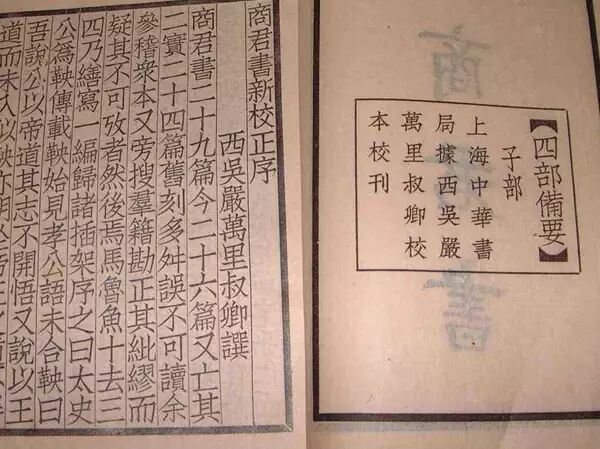 【四部備要】
子部
上海中華書
局據西吳嚴
萬里叔卿校
本校刊
商君書
商君書新校正序
西吳嚴萬里叔卿譔
商君書二十九篇今二十六篇又亡其
二實二十四篇舊刻多舛誤不可讀余
參稽衆本又旁搜羣籍勘正其紕繆而
疑其不可攷者然後焉馬魯魚十去三
四乃繕寫一編歸諸插架序之曰太史
公為鞅傳載鞅始見孝公語未合鞅曰
吾說公以帝道其志不開悟又說以王
道而未入